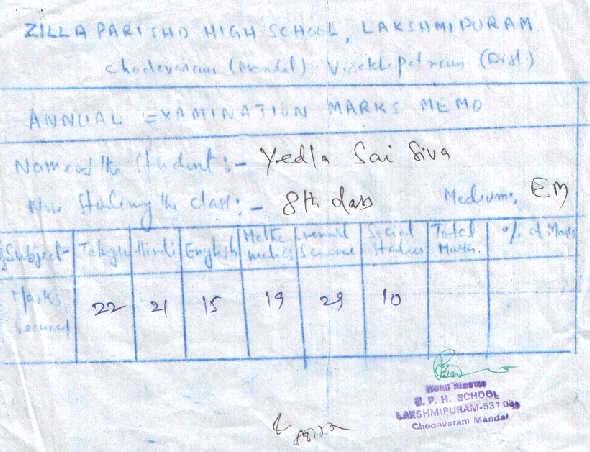 ZILLA PARISHD HIGH SCHOOL, LAKSHMIPURAM
Chodavaram (Mandal) Visakhapatnam (Dist.)
ANNUAL EXAMINATION MARKS MEMO
Name of the Student :- Yedla Sai Siva
Now Studing the class :- 8th class Medium: EM
Subject- Telugu Hindi English Mathe matics General Science Social Studies Total Marks. % of Marks
Marks Secured 22 21 15 19 29 10
HEAD MASTER
Z. P. H. SCHOOL
LAKSHMIPURAM-531
Chodavaram Mandal